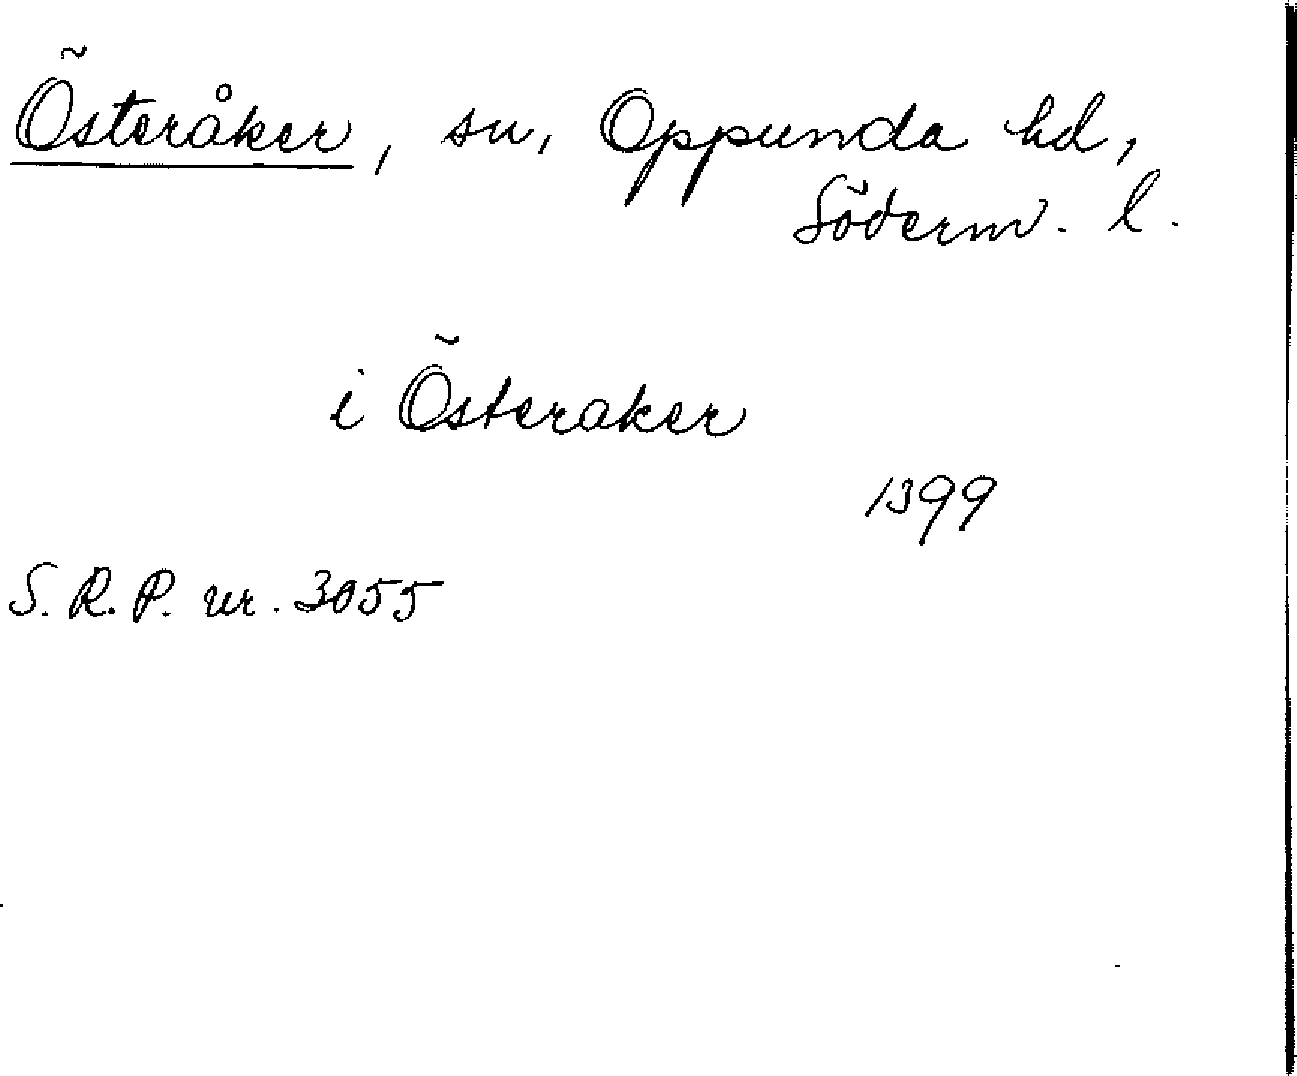 Österåker, sn, Oppunda hd,
Söderm. l.
i Österaker
1399
S. R. P. nr. 3055